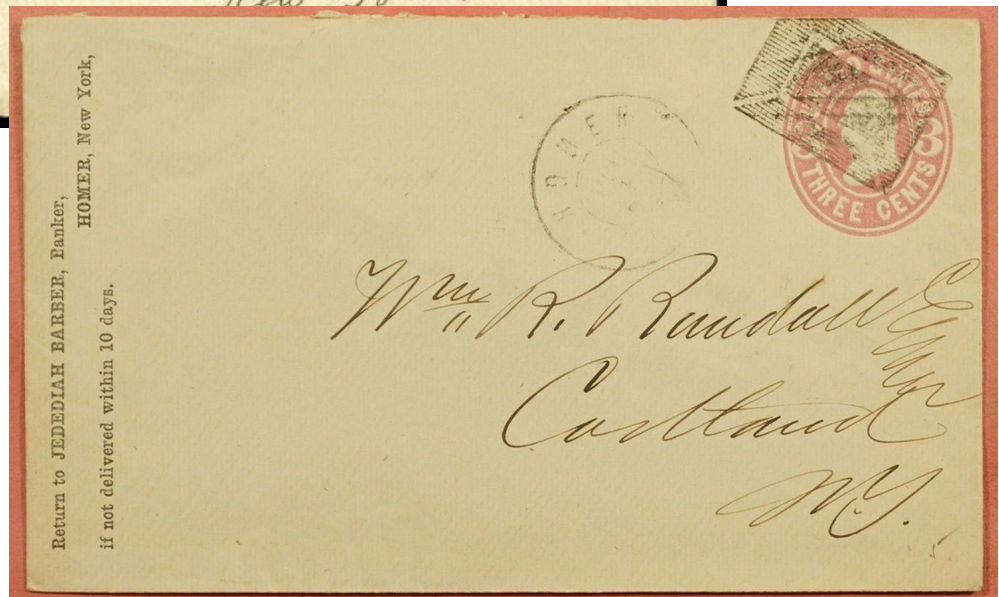 New Yo
Return to JEDEDIAH BARBER, Banker,
HOMER, New York,
if not delivered within 10 days.
HOMER
THREE CENTS
3
Wm R. Randall Esqr
Cortland
N.Y.